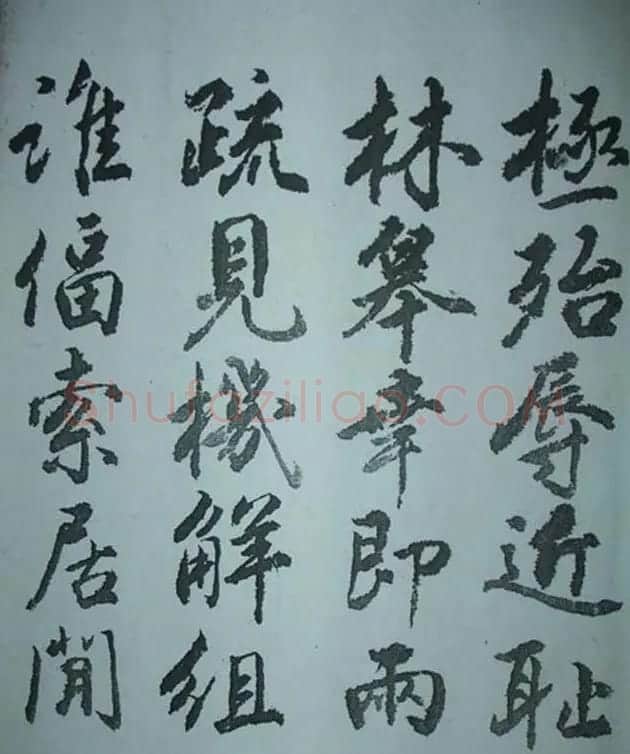 極殆辱近耻
林皋幸即兩
疏見機解組
誰偪索居閒
Shufaziliao.COM